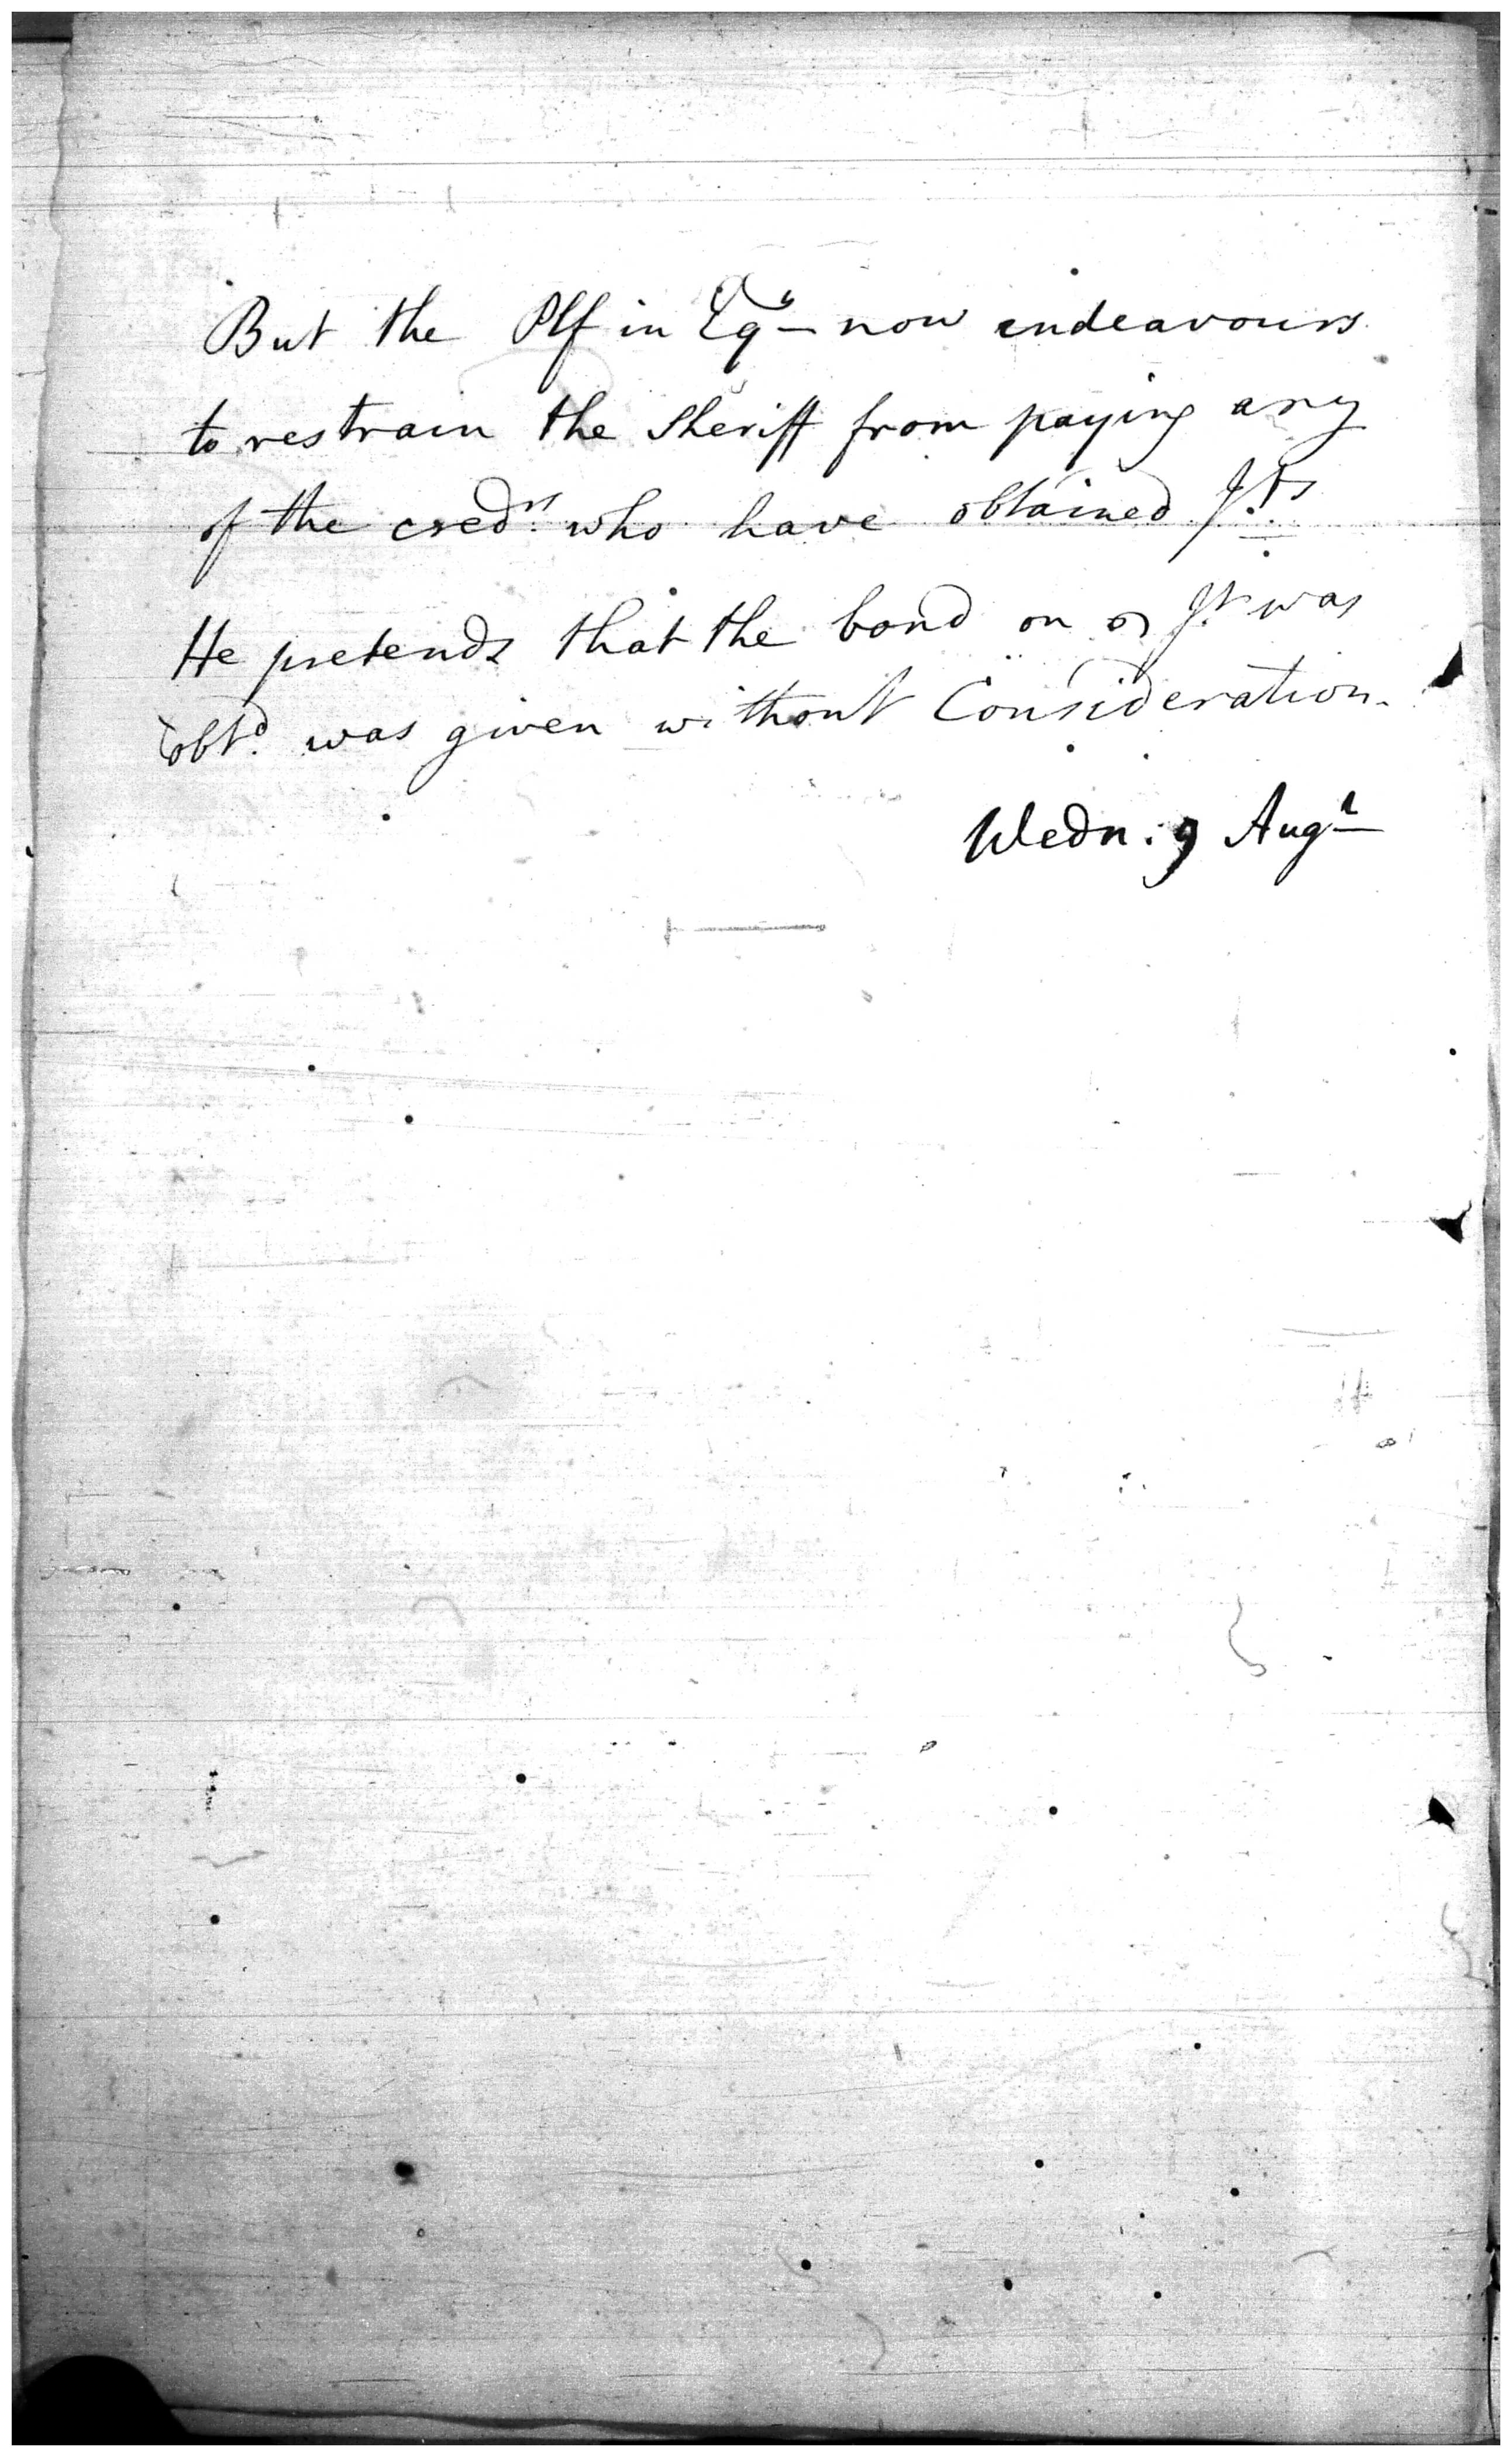 But the Plf in Eqy now endeavours
to restrain the Sheriff from paying any
of the credrs. who have obtained Jts
He pretends that the bond on Jt. was
obtd. was given without Consideration.
Wedn: 9 Augt